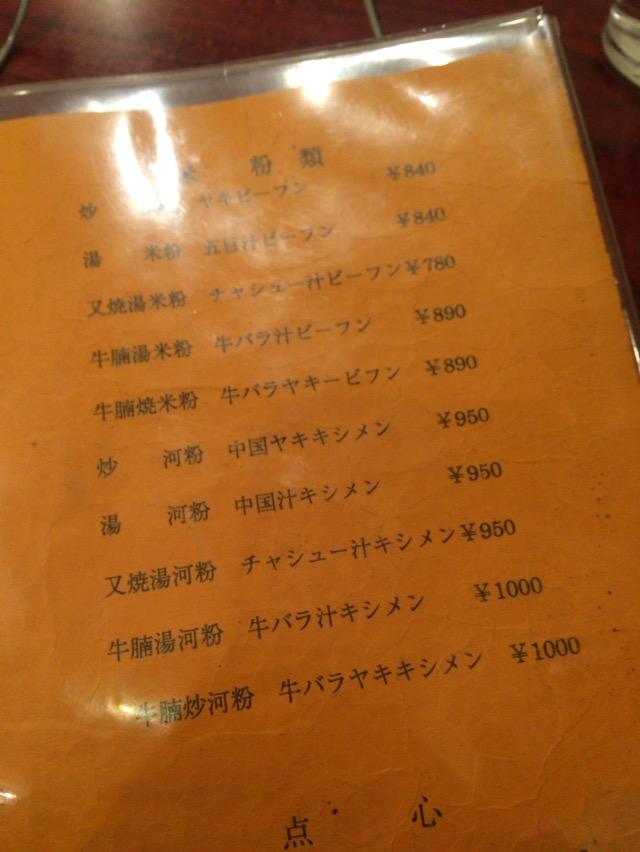 米 粉 類
炒 ヤキビーフン ¥840
湯 米粉 五目汁ビーフン ¥840
叉焼湯米粉 チャシュー汁ビーフン¥780
牛腩湯米粉 牛バラ汁ビーフン ¥890
牛腩焼米粉 牛バラヤキービフン ¥890
炒 河粉 中国ヤキキシメン ¥950
湯 河粉 中国汁キシメン ¥950
叉焼湯河粉 チャシュー汁キシメン¥950
牛腩湯河粉 牛バラ汁キシメン ¥1000
牛腩炒河粉 牛バラヤキキシメン ¥1000
点 心